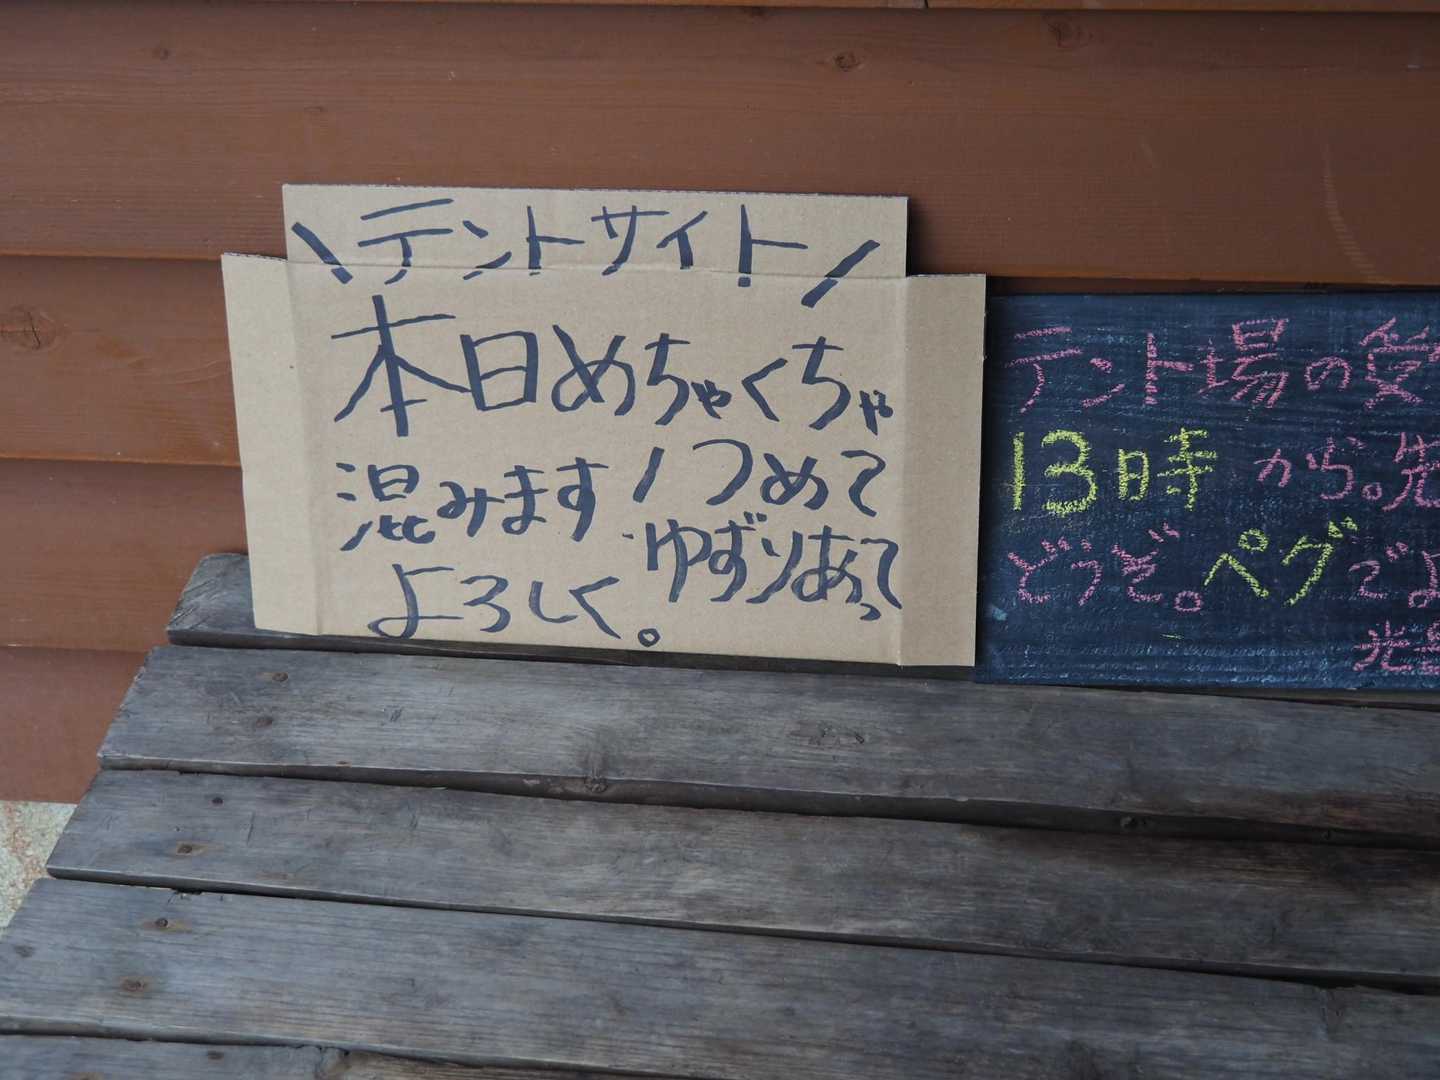 \テントサイト/
本日めちゃくちゃ
混みます! つめて
ゆずりあって
よろしく。
テント場の受
13時から。先
どうぞ。ペグでよ